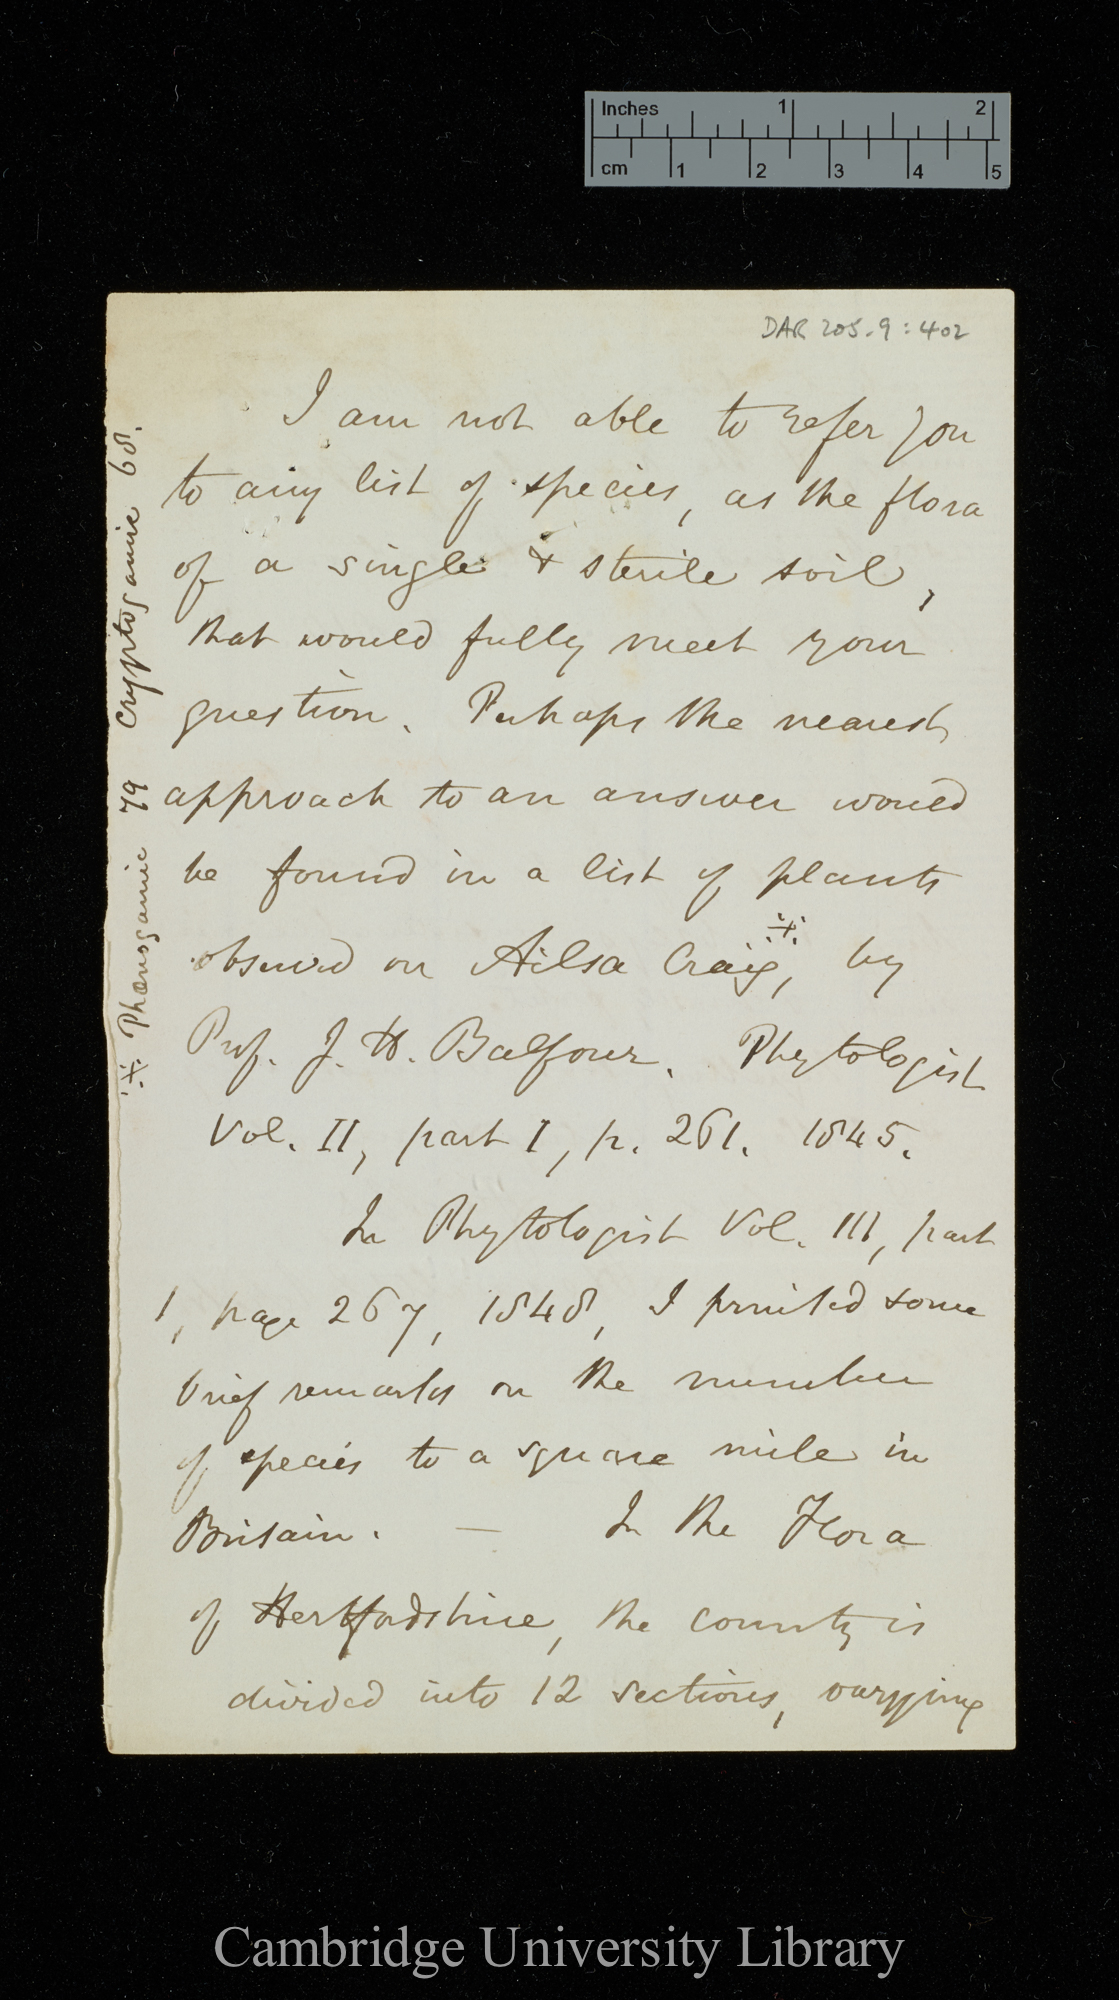 Inches 1 2
cm 1 2 3 4 5
DAR 205.9:402
I am not able to refer you
to any list of species, as the flora
of a single & sterile soil,
that would fully meet your
question. Perhaps the nearest
approach to an answer would
be found in a list of plants
observed on Ailsa Craig※, by
Prof. J. H. Balfour. Phytologist
Vol. II, part I, p. 261. 1845.
In Phytologist Vol. III, part
1, page 267, 1848, I printed some
brief remarks on the number
of species to a square mile in
Britain. — In the Flora
of Hertfordshire, the county is
divided into 12 sections, varying
※ Phænogamic 79 Cryptogamic 68.
Cambridge University Library